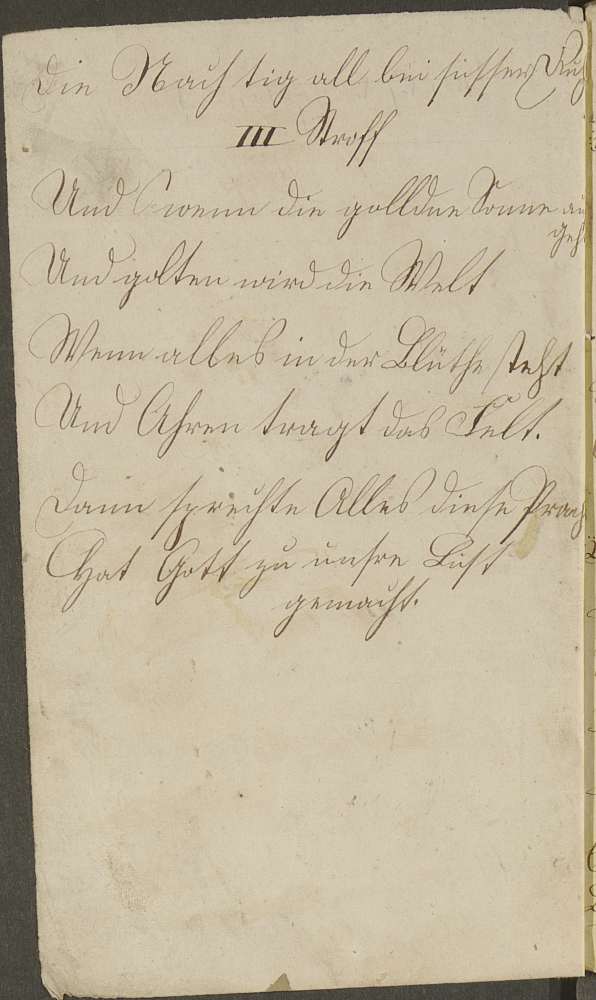 Die Nach tig all bei sisser Ruh
III Stroff
Und wenn die golldne Sonne auf
geh
Und golten wird die Welt
Wenn alles in der Blüthe steht
Und Ahren tragt das Felt.
Dann sprechte Alles diese Prach
Hat Gott zu unsre Lust
gemacht.